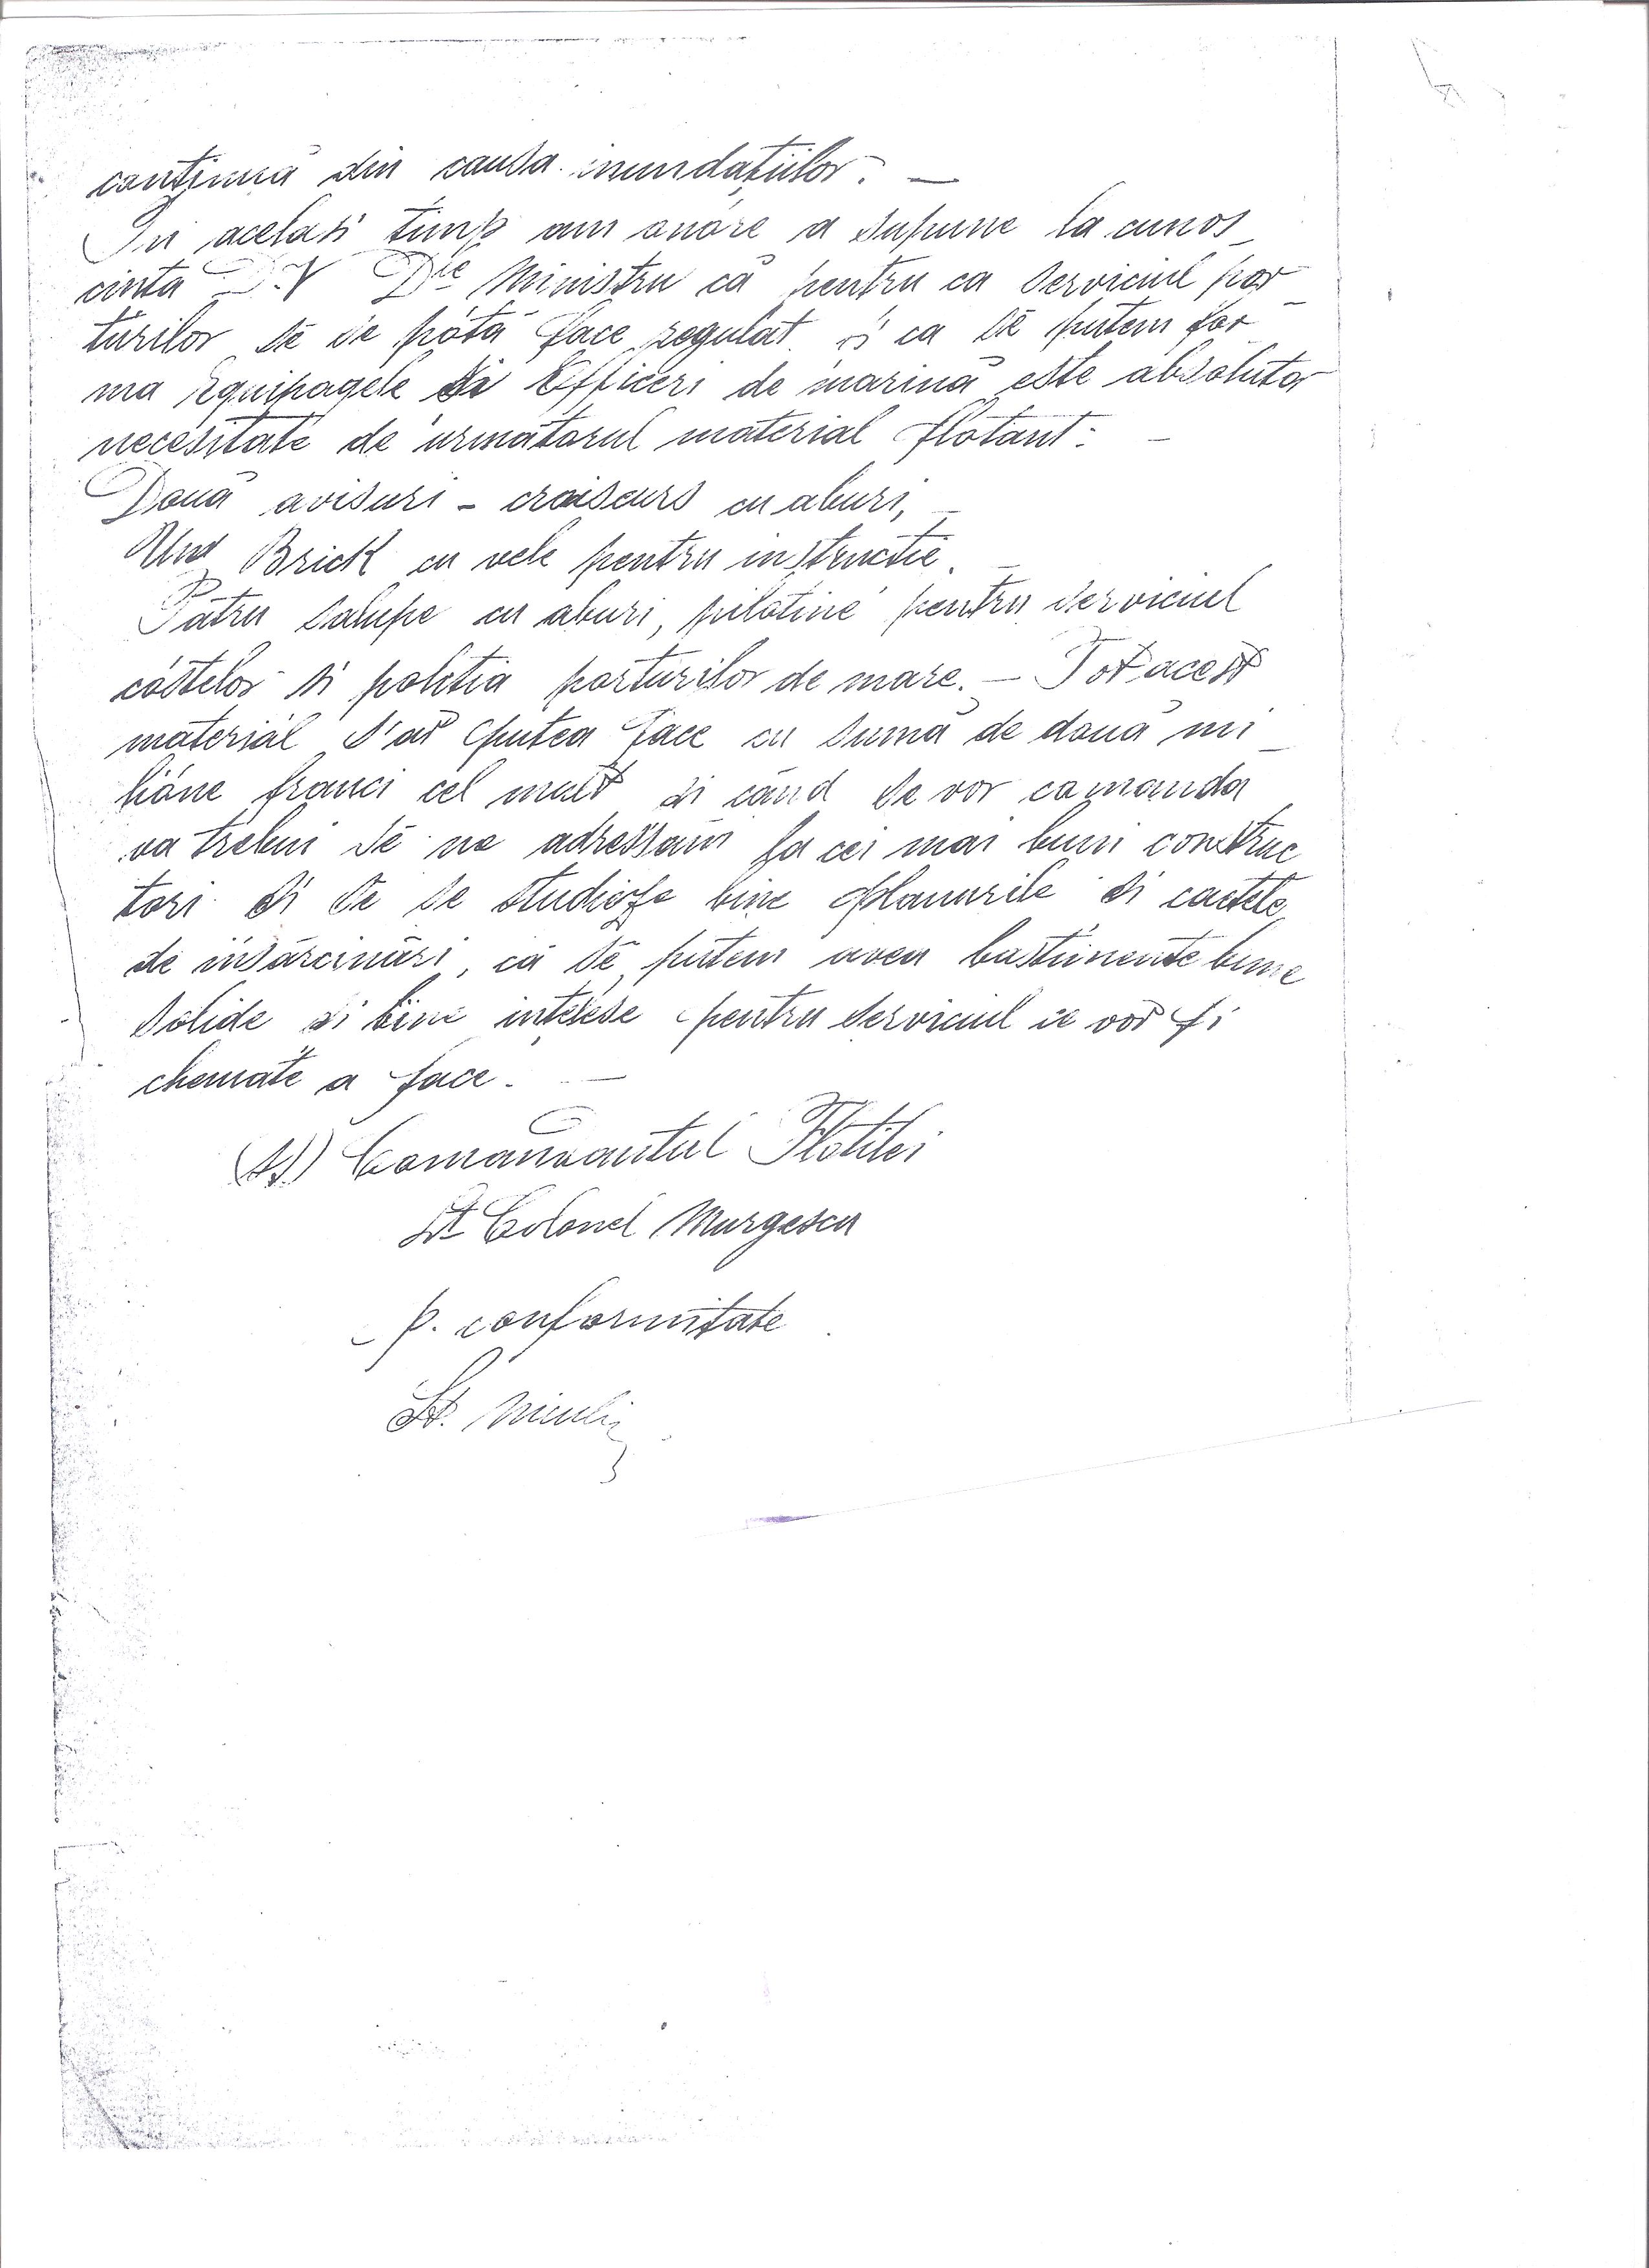 continuă din causa inundațiilor. —
In acelasi timp am onóre a supune la cunos_
cinta D.V Dle Ministru că pentru ca serviciul por_
turilor sĕ se pótă face regulat si ca sĕ putem for_
ma Equipagele si Officeri de marină este absoluta
necesitate de urmatorul material flotant: —
Două avisuri - croiseurs cu aburi, —
Una Brick cu vele pentru instructie. —
Patru salupe cu aburi, pilotine pentru serviciul
cóstelor si politia porturilor de mare. — Tot acest
material s'ar putea face cu suma de două mi_
lióne franci cel mult si când se vor comanda
va trebui sĕ ne adressăm la cei mai buni construc
tori si se se studieze bine planurile si caetele
de însărcinări, ca sĕ putem avea bastimente bune
solide si bine intelese pentru serviciul ce vor fi
chemate a face. —
(ss) Comandantul Flotilei
Lt Colonel Murgescu
p. conformitate